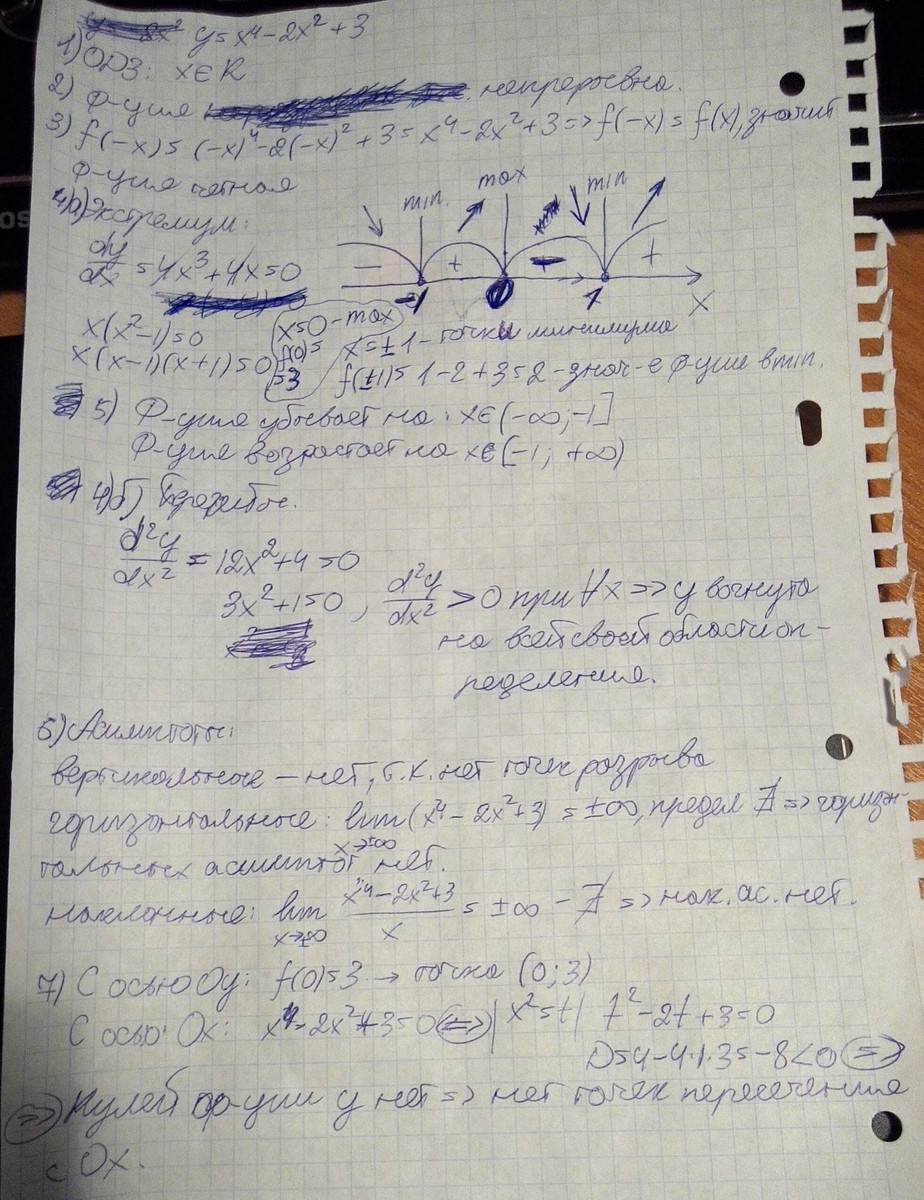 y = x⁴ - 2x² + 3
1) ОДЗ: x ∈ R
2) Ф-ция непрерывна.
3) f(-x) = (-x)⁴ - 2(-x)² + 3 = x⁴ - 2x² + 3 => f(-x) = f(x), значит
ф-ция четная
4)а) Экстремум:
dy/dx = 4x³ + 4x = 0
min. max min
- + - +
-1 0 1 X
x(x² - 1) = 0
x(x-1)(x+1) = 0
x=0 - max
f(0) =
= 3
x = ±1 - точки минимума
f(±1) = 1 - 2 + 3 = 2 - знач-е ф-ции в min.
5) Ф-ция убывает на: x ∈ (-∞; -1]
Ф-ция возрастает на x ∈ [-1; +∞)
4)б) Перегибы.
d²y/dx² = 12x² + 4 = 0
3x² + 1 = 0, d²y/dx² > 0 при ∀x => y вогнута
на всей своей области оп-
ределения.
6) Асимптоты:
вертикальные - нет, т.к. нет точек разрыва
горизонтальные: lim x→±∞ (x⁴ - 2x² + 3) = ±∞, предел ∄ => горизон-
тальных асимптот нет.
наклонные: lim x→±∞ (x⁴ - 2x² + 3)/x = ±∞ - ∄ => нак. ас. нет.
7) С осью Oy: f(0) = 3 → точка (0; 3)
С осью Ox: x⁴ - 2x² + 3 = 0 <=> |x² = t| t² - 2t + 3 = 0
D = 4 - 4·1·3 = -8 < 0 =>
=> Нулей ф-ции y нет => нет точек пересечения
с Ox.